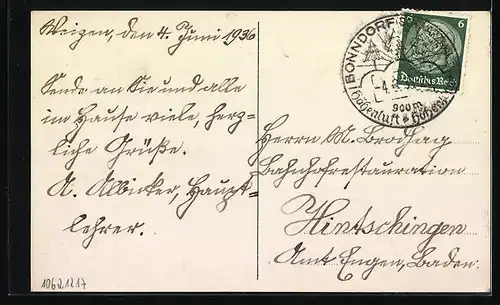 Weizen, den 4. Juni 1936
Sende an Sie und alle
im Hause viele, herz-
liche Grüße.
A. Albicker, Haupt-
lehrer.
BONNDORF
-4.6.
900 m
Höhenluft
6
Deutsches Reich
Herrn M. Brodhag
Bahnhofrestauration
Hintschingen
Amt Engen, Baden.
10621217